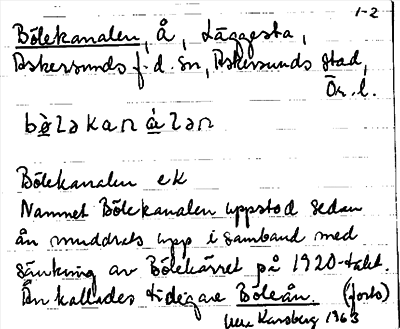 1-2
Bölekanalen, Å, Läggesta,
Askersunds f.d. sn, Askersunds stad,
Ör. l.
bö̀lakanàlən
Bölekanalen ek
Namnet Bölekanalen uppstod sedan
ån muddrats upp i samband med
sänkning av Bölekärret på 1920-talet.
Ån kallades tidigare Böleån. (forts)
Karsberg 1963